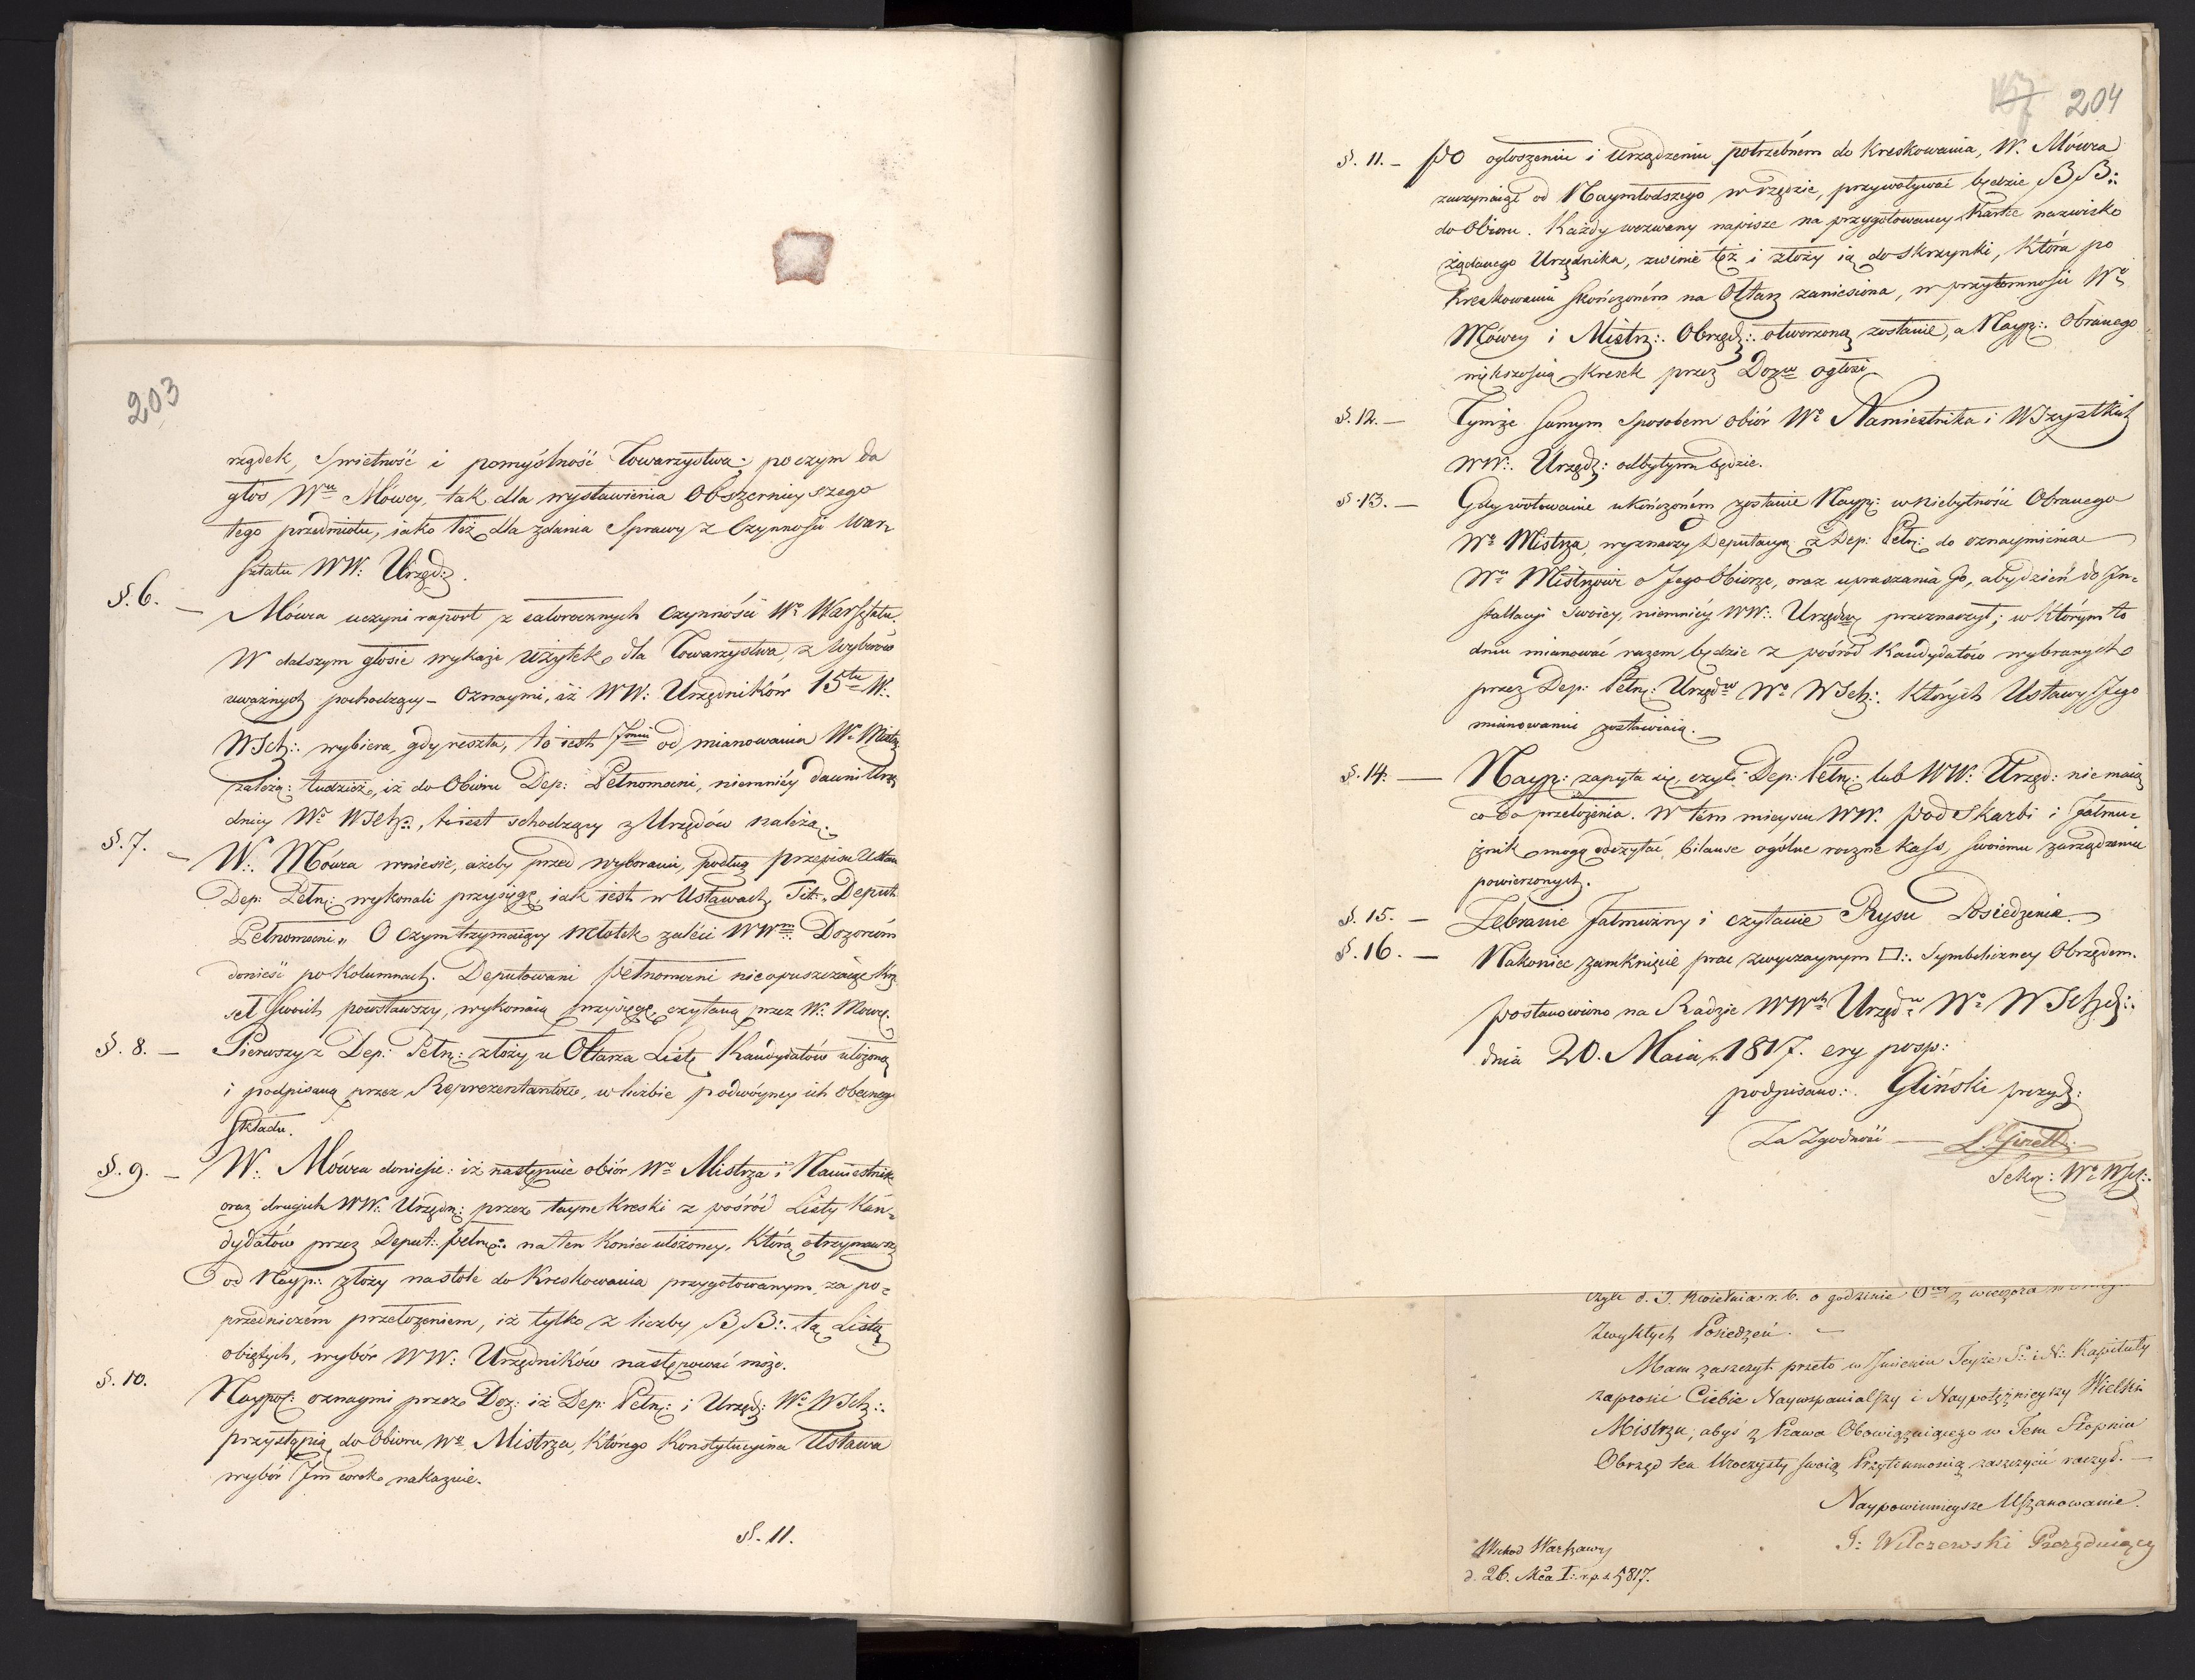 203
rządek, Swietność i pomyślność Towarzystwa; poczym da
głos Wmu Mówcy, tak dla wystawienia Obszernieyszego
tego przedmiotu, iako też dla zdania Sprawy z Czynności War=
sztatu WW: Urzęd:.
§. 6. — Mówca uczyni raport z całorocznych Czynności Wo Warsztatu.
W dalszym głosie wykaże użytek dla Towarzystwa, z Wyborów
uważnych pochodzący – Oznaymi, iż WW: Urzędników 15tu W:.
WSch:. wybiera, gdy reszta, to iest od mianowania Wo Mistrz
zależą: tudzież, iż do Obioru Dep: Pełnomocni, niemniéy dawni Urzę
dnicy Wo WSch:., to iest schodzący z Urzędów należą.
§. 7. — W:. Mówca wniesie, ażeby przed wyborami, podług przepisu Ustaw
Dep: Pełn: wykonali przysięgę, iak iest w Ustawach, Tit: „Deput:
Pełnomocni„ O czym trzymaiący Młotek zaleci WWm:. Dozorcóm
donieść po Kolumnach. Deputowani Pełnomocni nieopuszczaiąc krze
seł swoich powstawszy, wykonaią przysięgę, czytaną przez W:. Mowcę.
§. 8. — Pierwszy z Dep: Pełn: złoży u Ołtarza Listę Kandydatów ułożoną
i podpisaną przez Reprezentantów, w liczbie podwóyney ich obecnego
Składu.
§. 9. — W:. Mówca doniesie: iż nastąpi obiór Wo Mistrza i Namiestnika
oraz drugich WW: Urzędn: przez tayne Kreski z pośród Listy Kan=
dydatów przez Deput:. Pełn:. na ten koniec ułożoney, Którą otrzymawszy
od Nayp:. złoży na stole do Kreskowania przygotowanym, za po=
przedniczém przełożeniem, iż tylko z liczby BB:. tą Listą
obiętych, wybór WW: Urzędników następować może.
§. 10. Nayp: oznaymi przez Doz: iż Dep: Pełn: i Urzęd: Wo WSch:.
przystąpią do Obioru Wo Mistrza, Którego Konstytucyina Ustawa
wybór nakazuie.
§. 11.
167 204
§. 11. — Po ogłoszeniu i urządzeniu potrzebném do Kreskowania, W. Mówca
zaczynaiąc od Naymłodszego w rzędzie, przywoływać będzie BB:.
do Obioru. Każdy wezwany napisze na przygotowaney Kartce nazwisko
żądanego Urzędnika, zwinie też i złoży ią do skrzynki, Która po
Kreskowaniu skończoném na Ołtarz zaniesiona, w przytomności Wo
Mówcy i Mistrz:. Obrzęd:. otworzoną zostanie, a Nayp:. Obranego
większością Kresek przez Dozw ogłosi.
§. 12. — Tymże samym sposobem obiór Wo Namiestnika i Wszystkich
WW:. Urzęd: odbytym będzie.
§. 13. — Gdy wotowanie ukończoném zostanie Nayp: w niebytności Obranego
Wo Mistrza, wyznaczy Deputacyą z Dep: Pełn: do oznaymienia
Wu Mistrzowi o Jego Obiorze, oraz upraszania Go, aby dzień do In=
stallacyi Swoiey, niemniéy WW:. Urzędw przeznaczył; w którym to
dniu mianować razem będzie z pośród Kandydatów wybranych
przez Dep: Pełn: Urzędw Wo WSch:. Których Ustawy Jego
mianowaniu zostawiaią.
§. 14. — Nayp: zapyta się, czyli Dep: Pełn: lub WW: Urzęd: nie maią
co do przełożenia. W tém mieyscu WW. Podskarbi i Jałmu=
żnik mogą odczytać, bilanse ogólne roczne Kass, swoiemu zarządzeniu
powierzonych.
§. 15. — Zebranie Jałmużny i czytanie Rysu Posiedzenia.
§. 16. — Nakoniec zamknięcie prac zwyczaynym □:. Symboliczney Obrzędem.
Postanowiono na Radzie WWch Urzędw Wo WSchd:.
dnia 20. Maia r. 1817. ery posp:
podpisano:. Gliński prezyd:
Za Zgodność —
Sekr: Wo WSch:.
czyli d. 3. Kwietnia r. b. o godzinie z wieczora
Zwykłych Posiedzeń. —
Mam zaszczyt przeto w Imieniu Teyże P:. i N:. Kapituły
zaprosić Ciebie Naywspanialszy i Naypotężnieyszy Wielki
Mistrzu, abyś z Prawa Obowiązuiącego w Tem Stopniu
Obrzęd ten Uroczysty swoią Przytomnością zaszczycić raczył. —
Naypowinnieysze Uszanowanie.
J: Wilczewski Prezyduiący
Wschod Warszawy
d. 26. Mca I:. r. p. s. 5817.